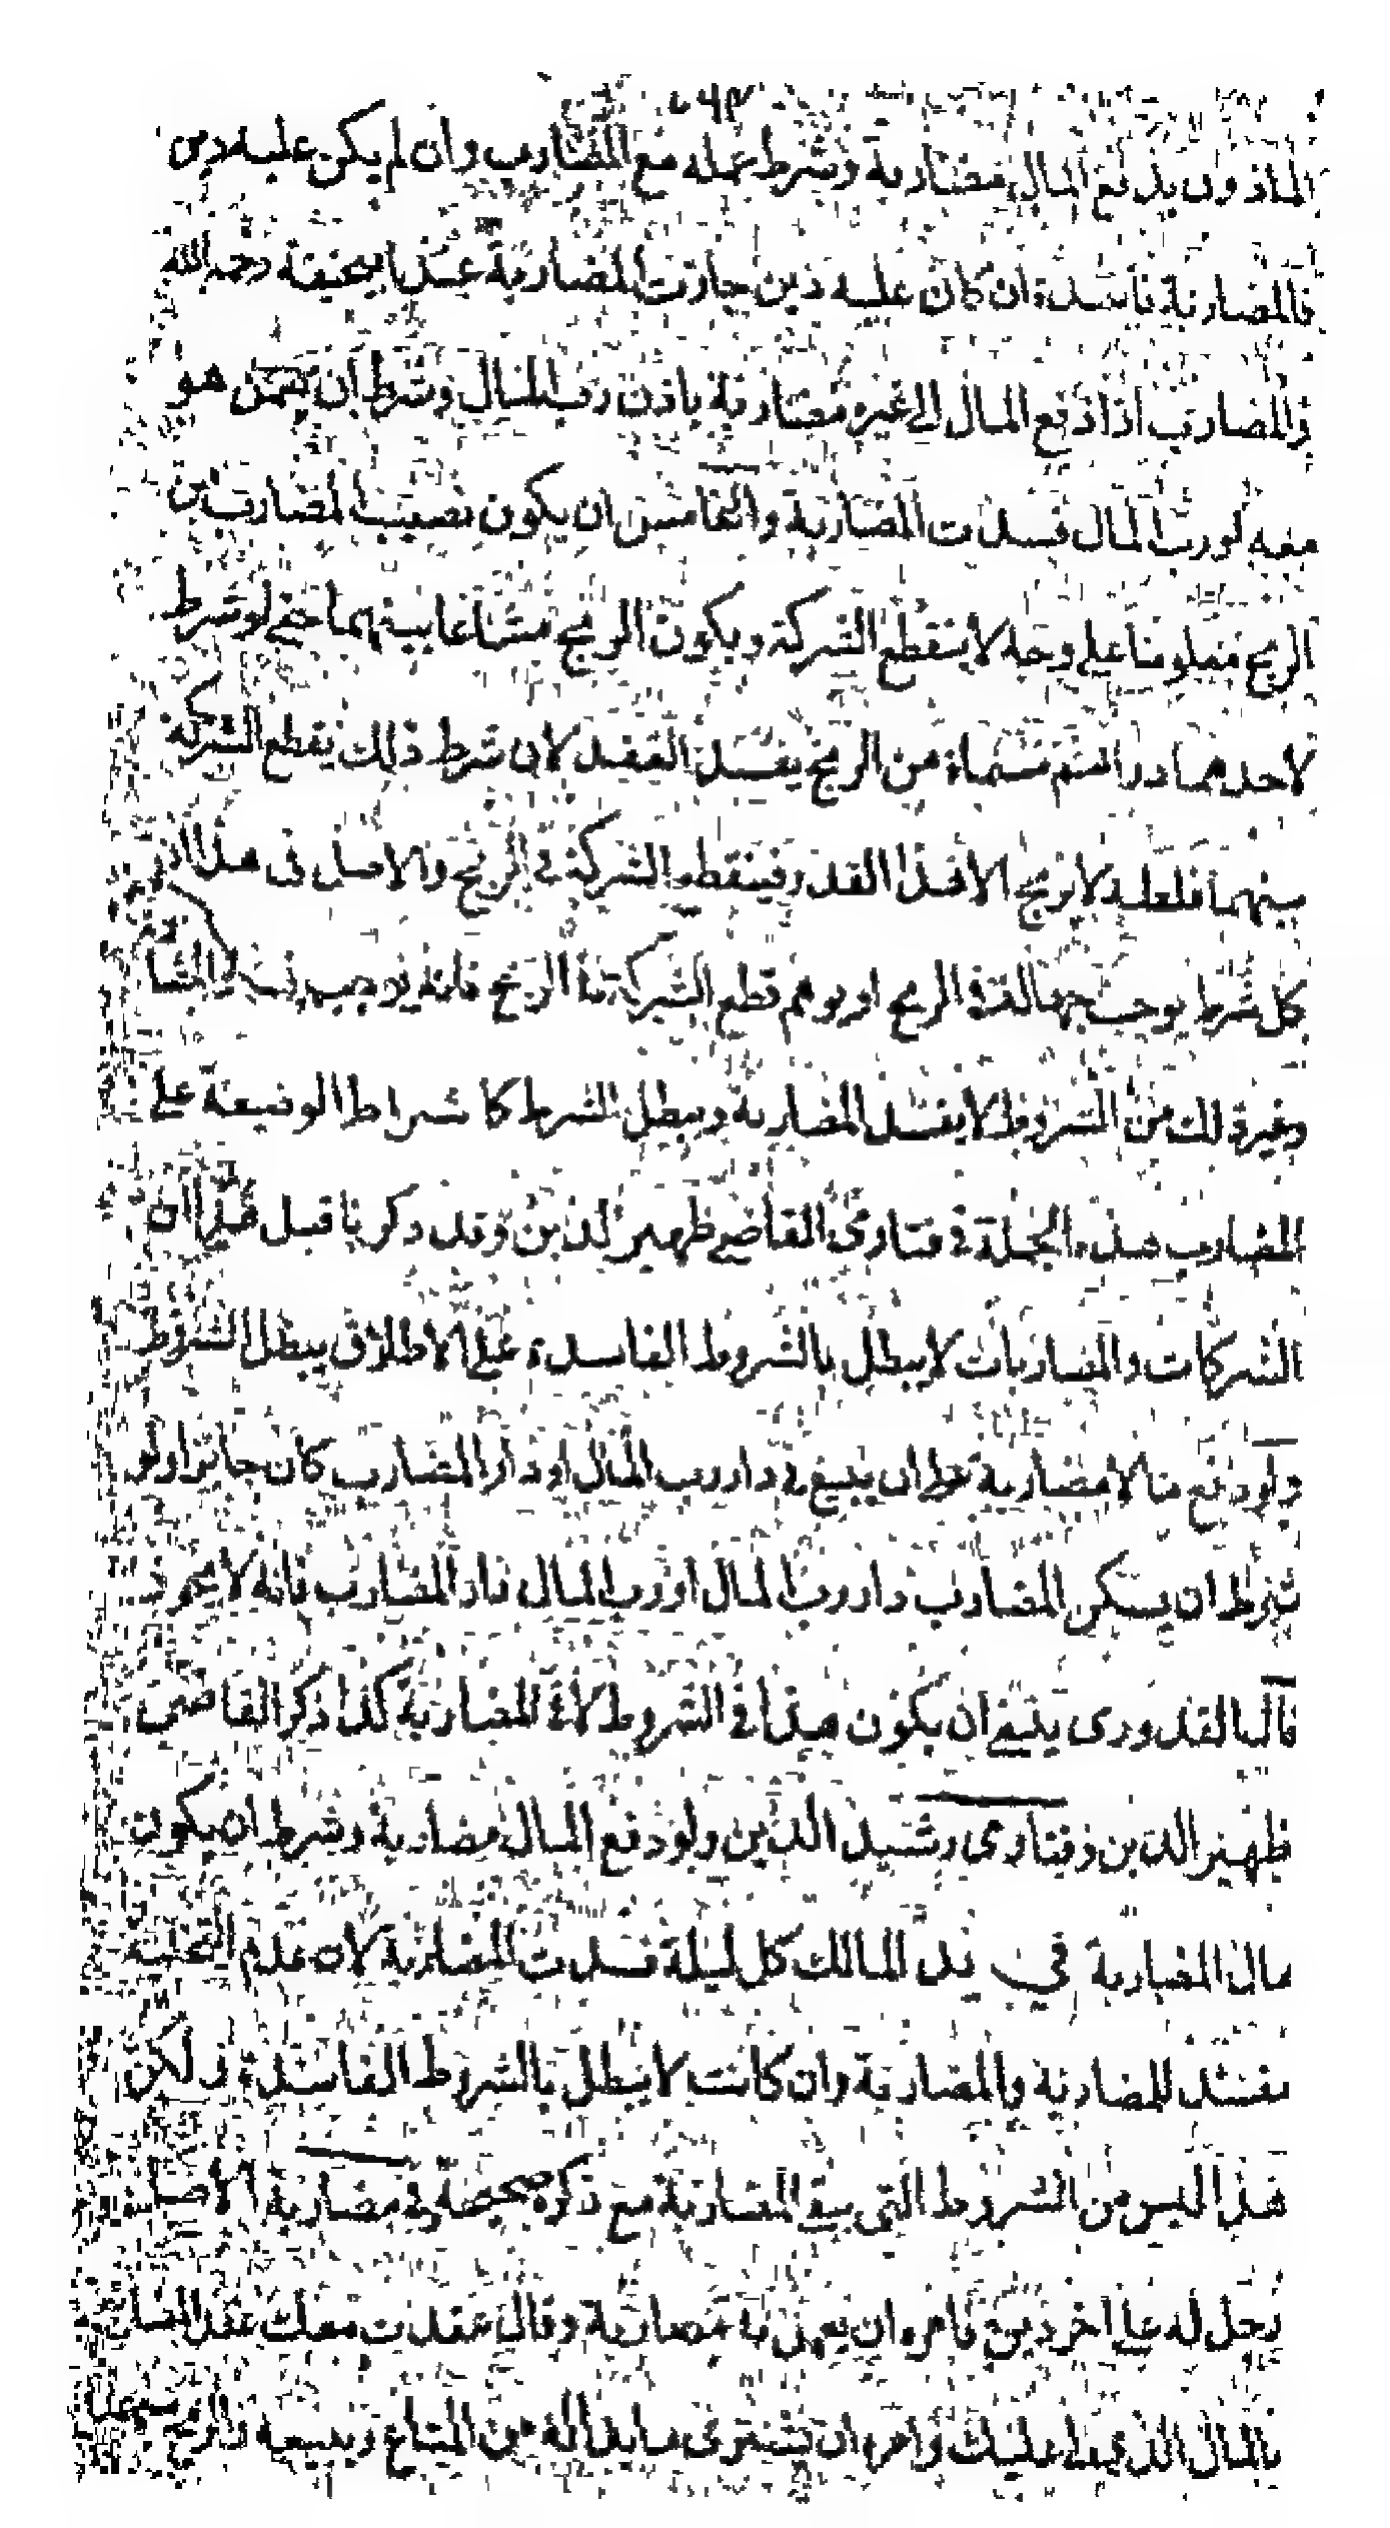 الماذون يدفع المال مضاربة وشرط عمله مع المضارب وان لم يكن عليه دين
فالمضاربة فاسدة وان كان عليه دين جازت المضاربة عند ابيحنيفة رحمه الله
والمضارب اذا دفع المال الى غيره مضاربة باذن رب المال وشرط ان يعمل هو
معه او رب المال فسدت المضاربة والخامس ان يكون نصيب المضارب من
الربح معلوما على وجه لا ينقطع الشركة ويكون الربح مشاعا بينهما حتى لو شرط
لاحدهما دراهم مسماة من الربح يفسد العقد لان شرط ذلك يقطع الشركة
بينهما فلعله لا يربح الا هذا القدر فينقطع الشركة في الربح والاصل في هذا ان
كل شرط يوجب جهالة في الربح او يوهم قطع الشركة في الربح فانه يوجب فساد المضا
وغير ذلك من الشروط لا يفسد المضاربة ويبطل الشرط كاشراط الوضيعة على
المضارب هذه الجملة في فتاوى القاضي ظهير الدين وقد ذكرنا قبل هذا ان
الشركات والمضاربات لا يبطل بالشروط الفاسدة على الاطلاق يبطل الشروط
ولو دفع مالا مضاربة على ان يبيع في دار رب المال او دار المضارب كان جائزا ولو
شرط ان يسكن المضارب دار رب المال او رب المال دار المضارب فانه لا يجوز
قال القدورى ينبغي ان يكون هذا في الشروط لا في المضاربة كذا ذكر القاضي
ظهير الدين وفتاوى رشيد الدين ولو دفع المال مضاربة وشرط ان يكون
مال المضاربة في يد المالك كل ليلة فسدت المضاربة لان عدم التخلية
مفسد للمضاربة والمضاربة وان كانت لا يبطل بالشروط الفاسدة ولكن
هذا ليس من الشروط التي يبقى المضاربة مع ذكره صحيحة وفي مضاربة الاصل
رجل له على اخر دين فامره ان يعمل بها مضاربة وقال عقدت معك عقد المضاربة
بالمال الذي عليك وامره ان تشترى ما بدا له من المتاع ويبيعه فالربح